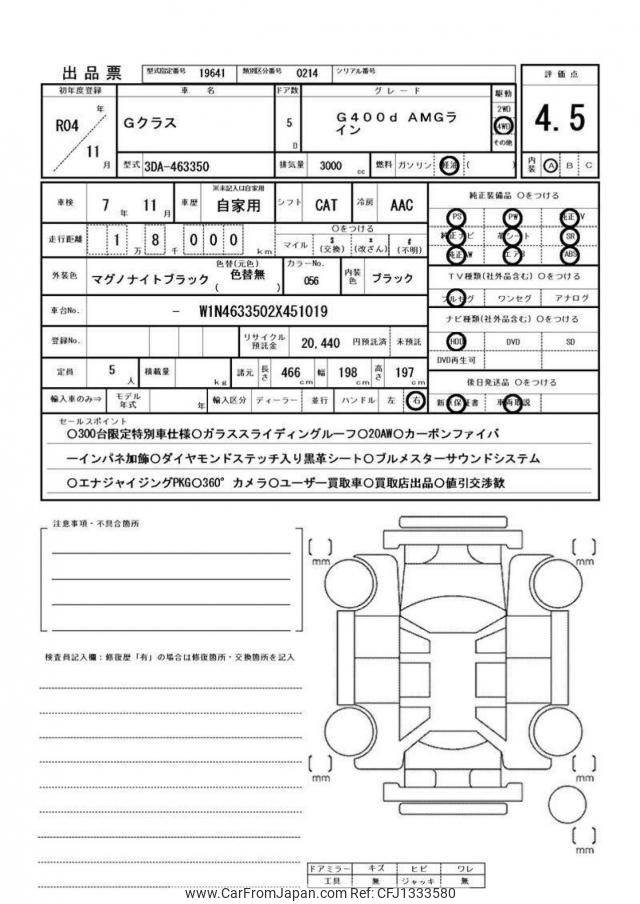 出品票 型式指定番号 19641 類別区分番号 0214 シリアル番号
初年度登録 車名 ドア数 グレード 駆動 評価点
R04 年 11 月 Gクラス 5 D G400d AMGライン 2WD 4WD その他 4.5
型式 3DA-463350 排気量 3000 cc 燃料 ガソリン 軽油 ( ) 内装 A B C
車検 7 年 11 月 車歴 ※未記入は自家用 自家用 シフト CAT 冷房 AAC 純正装備品 ○をつける
PS PW 純正TV
走行距離 1 万 8 千 0 0 0 km ○をつける マイル $ (交換) * (改ざん) # (不明) 純正ナビ 革シート SR
純正AW エアB ABS
外装色 マグノナイトブラック 色替(元色) 色替無 ( ) カラーNo. 056 内装色 ブラック TV種類(社外品含む) ○をつける
フルセグ ワンセグ アナログ
車台No. - W1N4633502X451019 ナビ種類(社外品含む) ○をつける
登録No. リサイクル預託金 20,440 円預託済 未預託 HDD DVD SD
DVD再生可
定員 5 人 積載量 kg 諸元 長さ 466 cm 幅 198 cm 高さ 197 cm 後日発送品 ○をつける
輸入車のみ⇒ モデル年式 年 輸入区分 ディーラー 並行 ハンドル 左 右 新車保証書 車両取説
セールスポイント
○300台限定特別車仕様○ガラススライディングルーフ○20AW○カーボンファイバ
ーインパネ加飾○ダイヤモンドステッチ入り黒革シート○ブルメスターサウンドシステム
○エナジャイジングPKG○360°カメラ○ユーザー買取車○買取店出品○値引交渉歓
注意事項・不具合箇所
[ ] mm [ ] mm
検査員記入欄：修復歴「有」の場合は修復箇所・交換箇所を記入
[ ] mm [ ] mm
[ ] mm
ドアミラー キズ ヒビ ワレ
工具 無 ジャッキ 無
www.CarFromJapan.com Ref:CFJ1333580